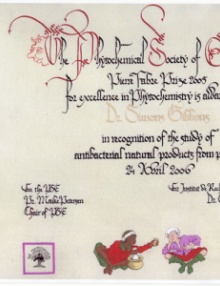 The Phytochemical Society of
Pierre Fabre Prize 2005
For excellence in Phytochemistry is
Dr. Simon Gibbons
in recognition of the study of
antibacterial natural products from
24 April 2006
For the PSE
Chair of PSE